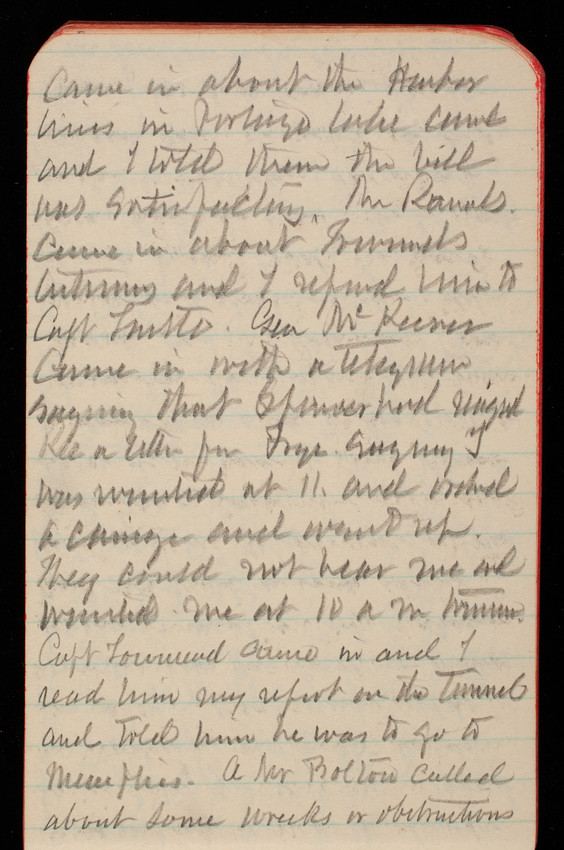 Came in about the Harbor
lines in Portage lake canal
and I told them the bill
was satisfactory. Mr Rawls.
came in about Townsends
and I referd him to
Capt Geo McKeever
came in with a telegram
saying that Spencer had resigned
Rec a letter from Frye saying I
was wanted at 11. and orderd
a carriage and went up.
They could not hear me and
wanted me at 10 a m tomrw.
Capt Townsend came in and I
read him my report on the Tunnel
and told him he was to go to
Memphis. A Mr Bolton called
about some wrecks or obstructions